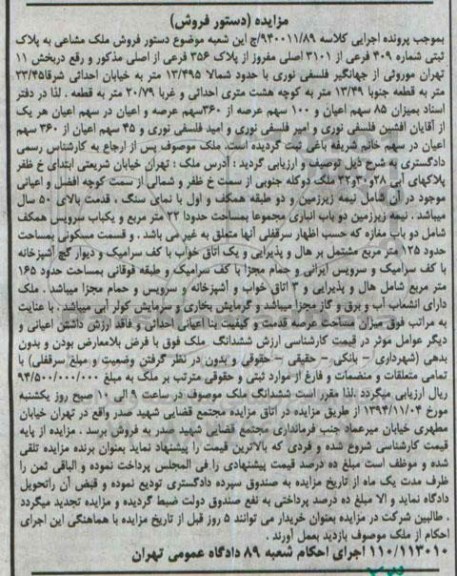 مزایده (دستور فروش)
بموجب پرونده اجرایی کلاسه ۹۴۰۰۱۱/۸۹/ج این شعبه موضوع دستور فروش ملک مشاعی به پلاک
ثبتی شماره ۴۰۹ فرعی از ۳۱۰۱ اصلی مفروز از پلاک ۳۵۶ فرعی از اصلی مذکور و رفع دربخش ۱۱
تهران موروثی از جهانگیر فلسفی نوری با حدود شمالا ۱۳/۴۹۵ متر به خیابان احداثی شرقا ۲۳/۴۵
متر به قطعه جنوبا ۱۳/۴۹ متر به کوچه هشت متری احداثی و غربا ۲۰/۷۹ متر به قطعه . لذا در دفتر
اسناد بمیزان ۸۵ سهم اعیان و ۱۰۰ سهم عرصه از ۳۶۰سهم عرصه و اعیان در سهم اعیان هر یک
از آقایان افشین فلسفی نوری و امیر فلسفی نوری و امید فلسفی نوری و ۴۵ سهم اعیان از ۳۶۰ سهم
اعیان در سهم خانم شریفه باغی ثبت گردیده است. ملک موصوف پس از ارجاع به کارشناس رسمی
دادگستری به شرح ذیل توصیف و ارزیابی گردید : آدرس ملک : تهران خیابان شریعتی ابتدای خ ظفر
پلاکهای آبی ۲۸و۳۰و۳۲ ملک دوکله جنوبی از سمت خ ظفر و شمالی از سمت کوچه افضل و اعیانی
موجود در آن شامل نیمه زیرزمین و دو طبقه همکف و اول با نمای سنگ ، قدمت بالای ۵۰ سال
میباشد . نیمه زیرزمین دو باب انباری مجموعا بمساحت حدودا ۲۲ متر مربع و یکباب سرویس همکف
شامل دو باب مغازه که حسب اظهار سرقفلی آنها متعلق به غیر می باشد . و قسمت مسکونی بمساحت
حدود ۱۲۵ متر مربع مشتمل بر هال و پذیرایی و یک اتاق خواب با کف سرامیک و دیوار گچ آشپزخانه
با کف سرامیک و سرویس ایرانی و حمام مجزا با کف سرامیک و طبقه فوقانی بمساحت حدود ۱۶۵
متر مربع شامل هال و پذیرایی و ۳ اتاق خواب و آشپزخانه و سرویس و حمام مجزا میباشد . ملک
دارای انشعاب آب و برق و گاز مجزا میباشد و گرمایش بخاری و سرمایش کولر آبی میباشد . با عنایت
به مراتب فوق میزان مساحت عرصه قدمت و کیفیت بنا اعیانی احداثی و فاقد ارزش داشتن اعیانی و
دیگر عوامل موثر در قیمت کارشناسی ارزش ششدانگ ملک فوق با فرض بلامعارض بودن و بدون
بدهی (شهرداری – بانکی – حقیقی – حقوقی و بدون در نظر گرفتن وضعیت و مبلغ سرقفلی) با
تمامی متعلقات و منضمات و فارغ از موارد ثبتی و حقوقی مترتب بر ملک به مبلغ ۹۴/۵۰۰/۰۰۰/۰۰۰
ریال ارزیابی میگردد .لذا مقرر است ششدانگ ملک موصوف در ساعت ۹ الی ۱۰ صبح روز یکشنبه
مورخ ۱۳۹۴/۱۱/۰۴ از طریق مزایده در اتاق مزایده مجتمع قضایی شهید صدر واقع در تهران خیابان
مطهری خیابان میرعماد جنب فرمانداری مجتمع قضایی شهید صدر به فروش برسد . مزایده از پایه
قیمت کارشناسی شروع شده و فردی که بالاترین قیمت را پیشنهاد نماید بعنوان برنده مزایده تلقی
شده و موظف است مبلغ ده درصد قیمت پیشنهادی را فی المجلس پرداخت نموده و الباقی ثمن را
ظرف مدت یک ماه از تاریخ مزایده به صندوق سپرده دادگستری تودیع نموده و قبض آن راتحویل
دادگاه نماید و الا مبلغ ده درصد پرداختی به نفع صندوق دولت ضبط گردیده و مزایده تجدید میگردد
. طالبین شرکت در مزایده بعنوان خریدار می توانند ۵ روز قبل از تاریخ مزایده با هماهنگی این اجرای
احکام از ملک موصوف بازدید بعمل آورند .
۱۱۰/۱۱۳۰۱۰ اجرای احکام شعبه ۸۹ دادگاه عمومی تهران